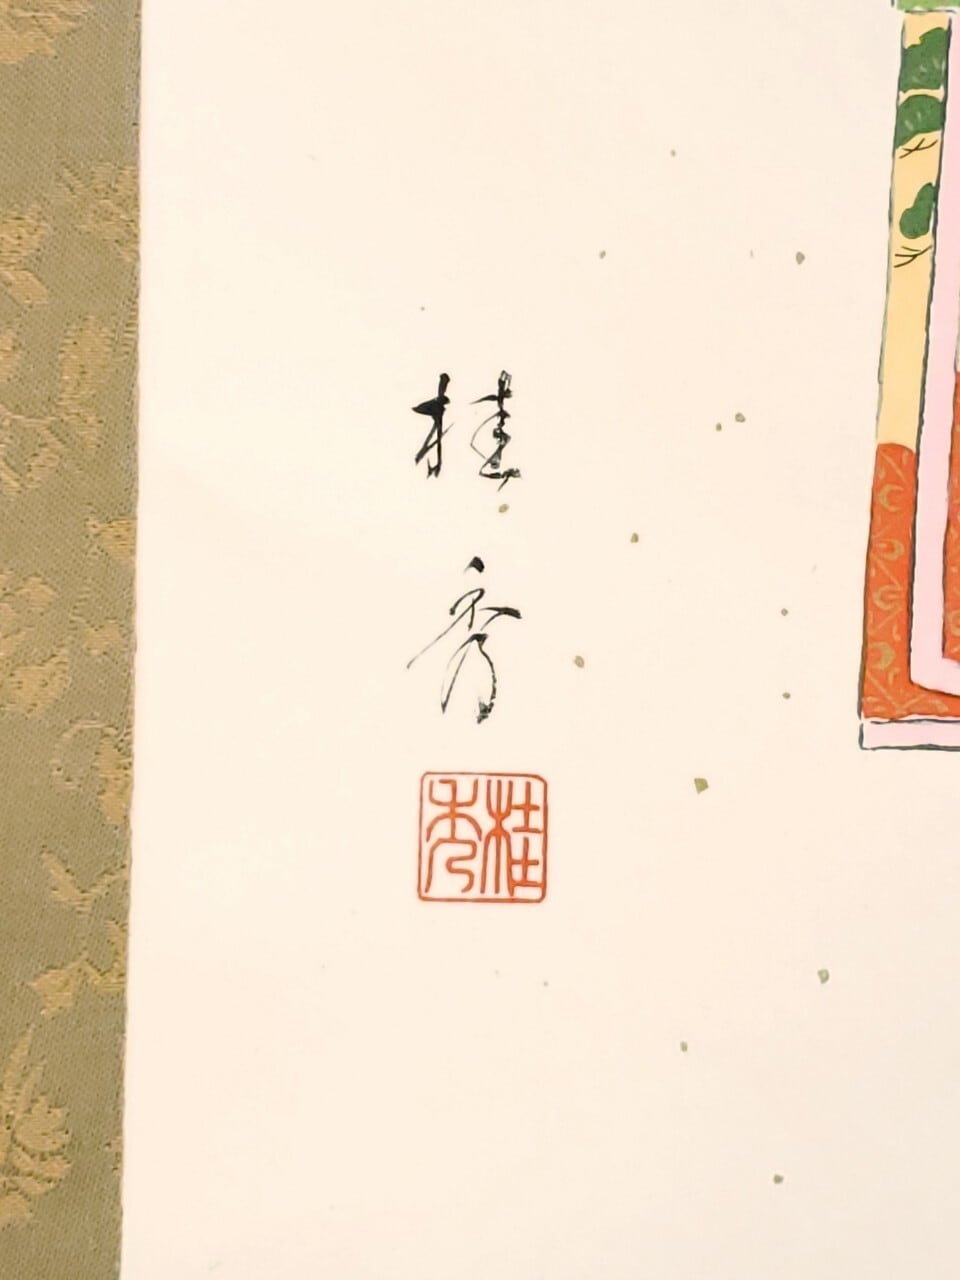 桂秀
桂秀